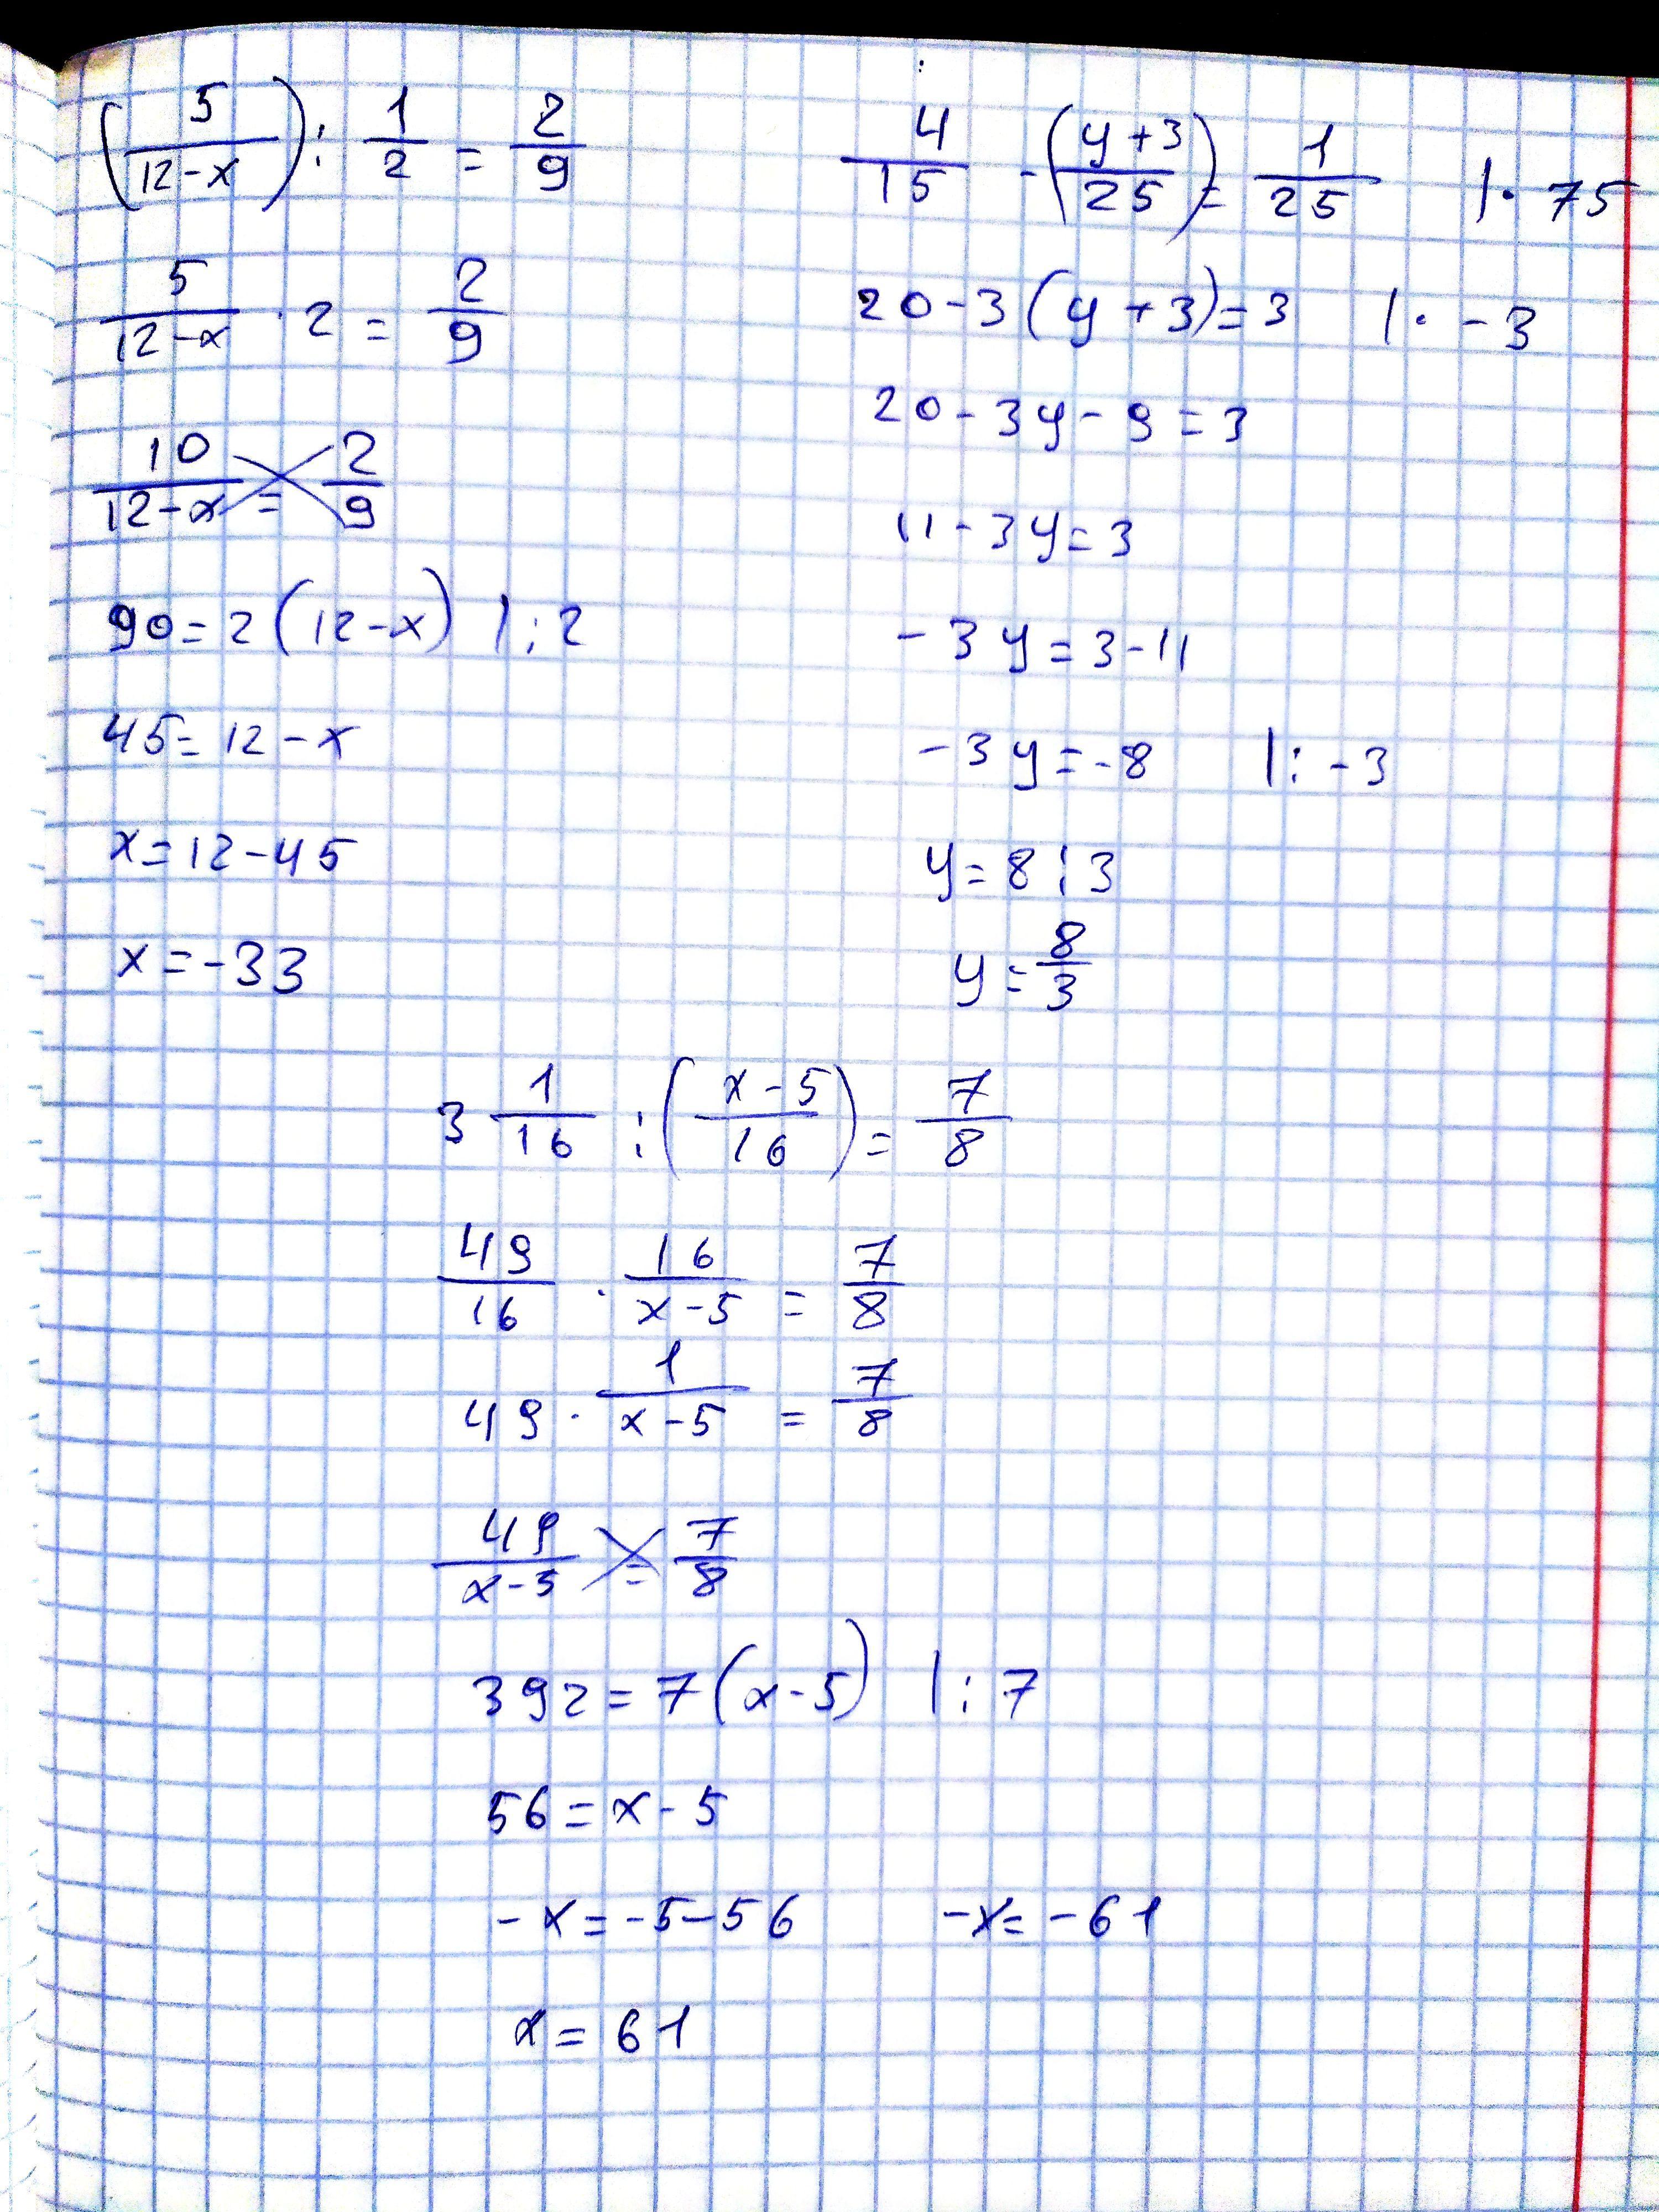 (5/(12-x)) : 1/2 = 2/9
5/(12-x) · 2 = 2/9
10/(12-x) = 2/9
90=2(12-x) |:2
45=12-x
x=12-45
x=-33
4/15 - ((y+3)/25) = 1/25 |· 75
20-3(y+3)=3 |· -3
20-3y-9=3
11-3y=3
-3y=3-11
-3y=-8 |: -3
y=8:3
y=8/3
3 1/16 : ((x-5)/16) = 7/8
49/16 · 16/(x-5) = 7/8
49 · 1/(x-5) = 7/8
49/(x-5) = 7/8
392=7(x-5) |:7
56=x-5
-x=-5-56 -x=-61
x=61